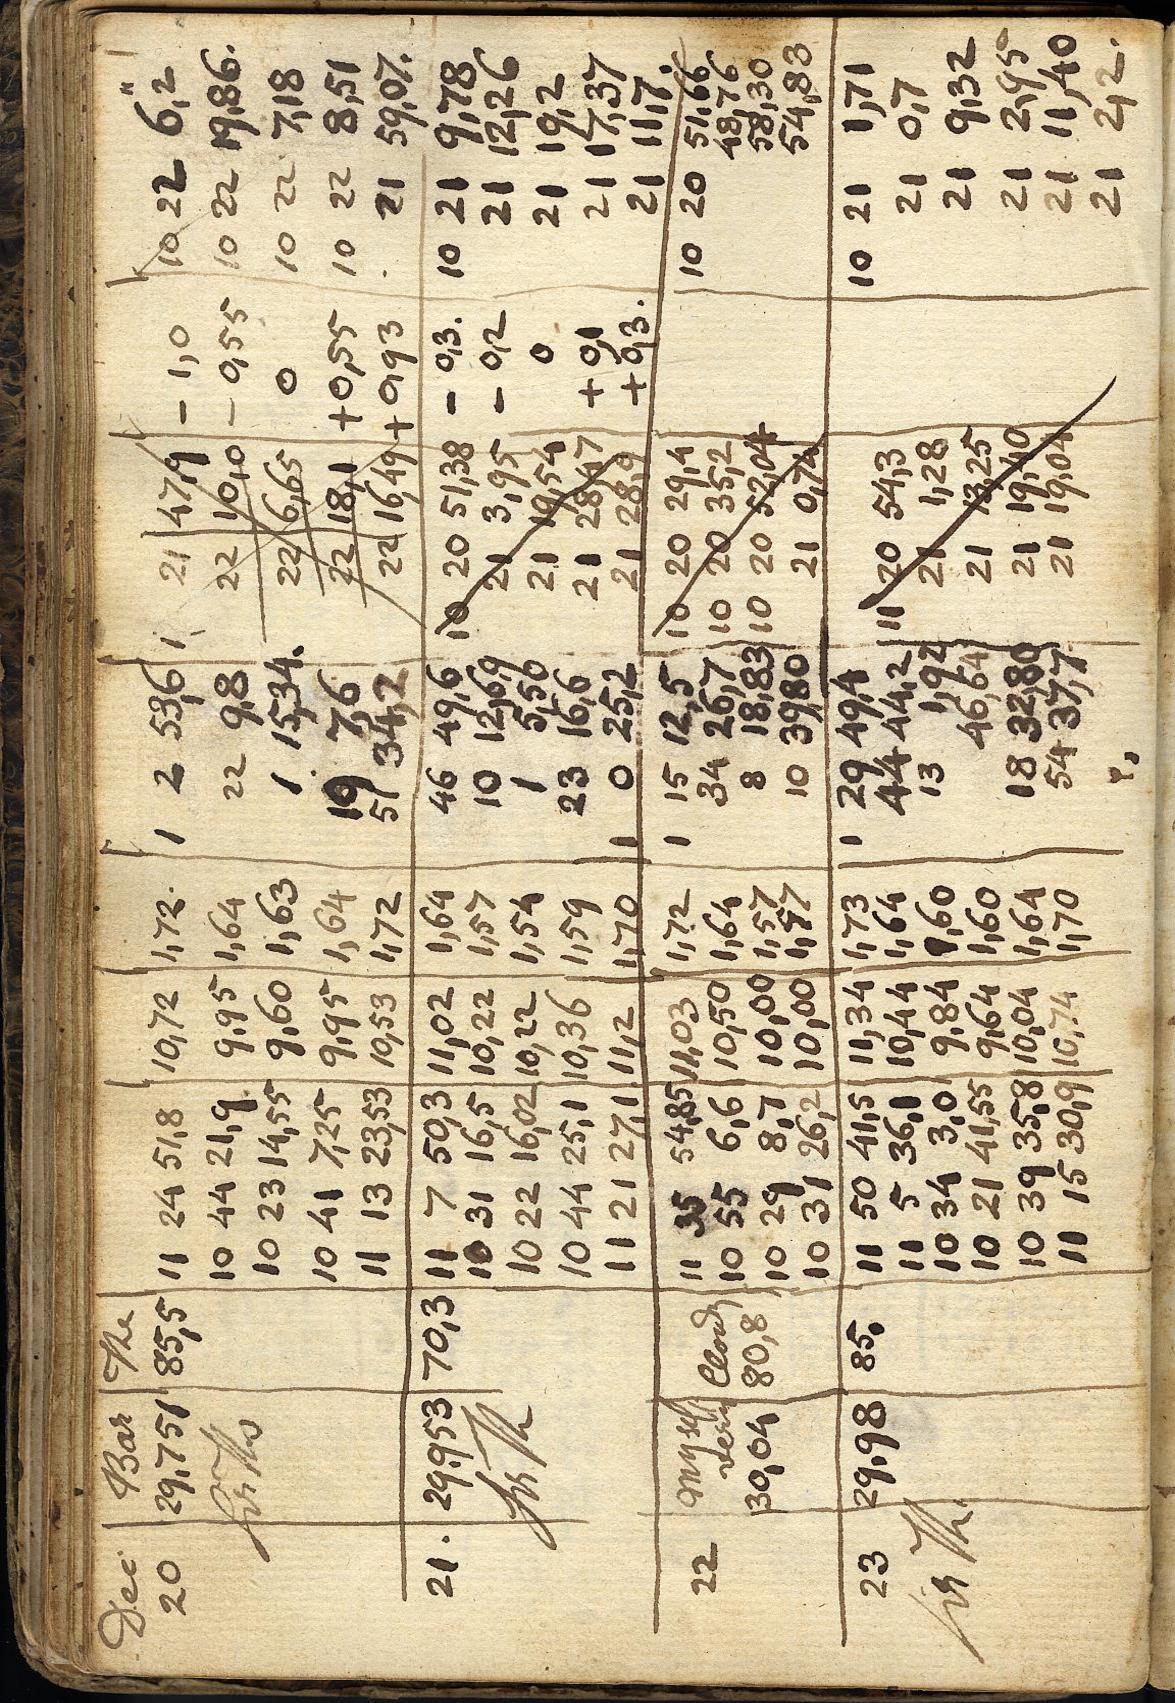 Dec Bar The
20 29,751 85,5 11 24 51,8 10,72 1,72 1 2 53,6 21 47,9 - 1,0 10 22 6,2
Sir Tho 10 44 21,9 9,95 1,64 22 9,8 22 10,0 - 0,55 10 22 19,86.
10 23 14,55 9,60 1,63 1 15,34. 22 6,65 0 10 22 7,18
10 41 7,25 9,95 1,64 19 7,6 22 18,1 +0,55 10 22 8,51
11 13 23,53 10,53 1,72 51 34,2 22 16,49 +0,93 21 59,07.
21. 29,953 70,3 11 7 50,3 11,02 1,64 46 49,6 10 20 51,38 - 0,3. 10 21 9,78
Sir Th 10 31 16,5 10,22 1,57 10 12,69 21 3,95 - 0,2 21 12,26
10 22 16,02 10,22 1,54 1 5,50 21 19,54 0 21 19,2
10 44 25,1 10,36 1,59 23 16,6 21 28,47 +0,1 21 17,37
11 21 27,1 11,2 1,70 1 0 25,2 21 28,9 +0,3. 21 11,7
22 myself Cloudy 11 35 54,85 11,03 1,72 1 15 12,5 10 20 29,4 10 20 51,66
very 10 55 6,6 10,50 1,64 34 26,7 10 20 35,2 48,76
30,04 80,8 10 29 8,7 10,00 1,57 8 18,83 10 20 52,04 58,30
10 31 26,2 10,00 1,57 10 39,80 21 0,74 54,83
23 29,98 85. 11 50 41,5 11,34 1,73 1 29 49,4 11 20 54,3 10 21 1,71
Sir Th. 11 5 36,1 10,44 1,64 44 44,2 21 1,28 21 0,7
10 34 3,0 9,84 1,60 13 1,92 21 13,25 21 9,32
10 21 41,55 9,64 1,60 46,64 21 19,40 21 2,95
10 39 35,8 10,04 1,64 18 32,80 21 19,04 21 11,40
11 15 30,9 10,74 1,70 54 37,7 21 2,2.
?